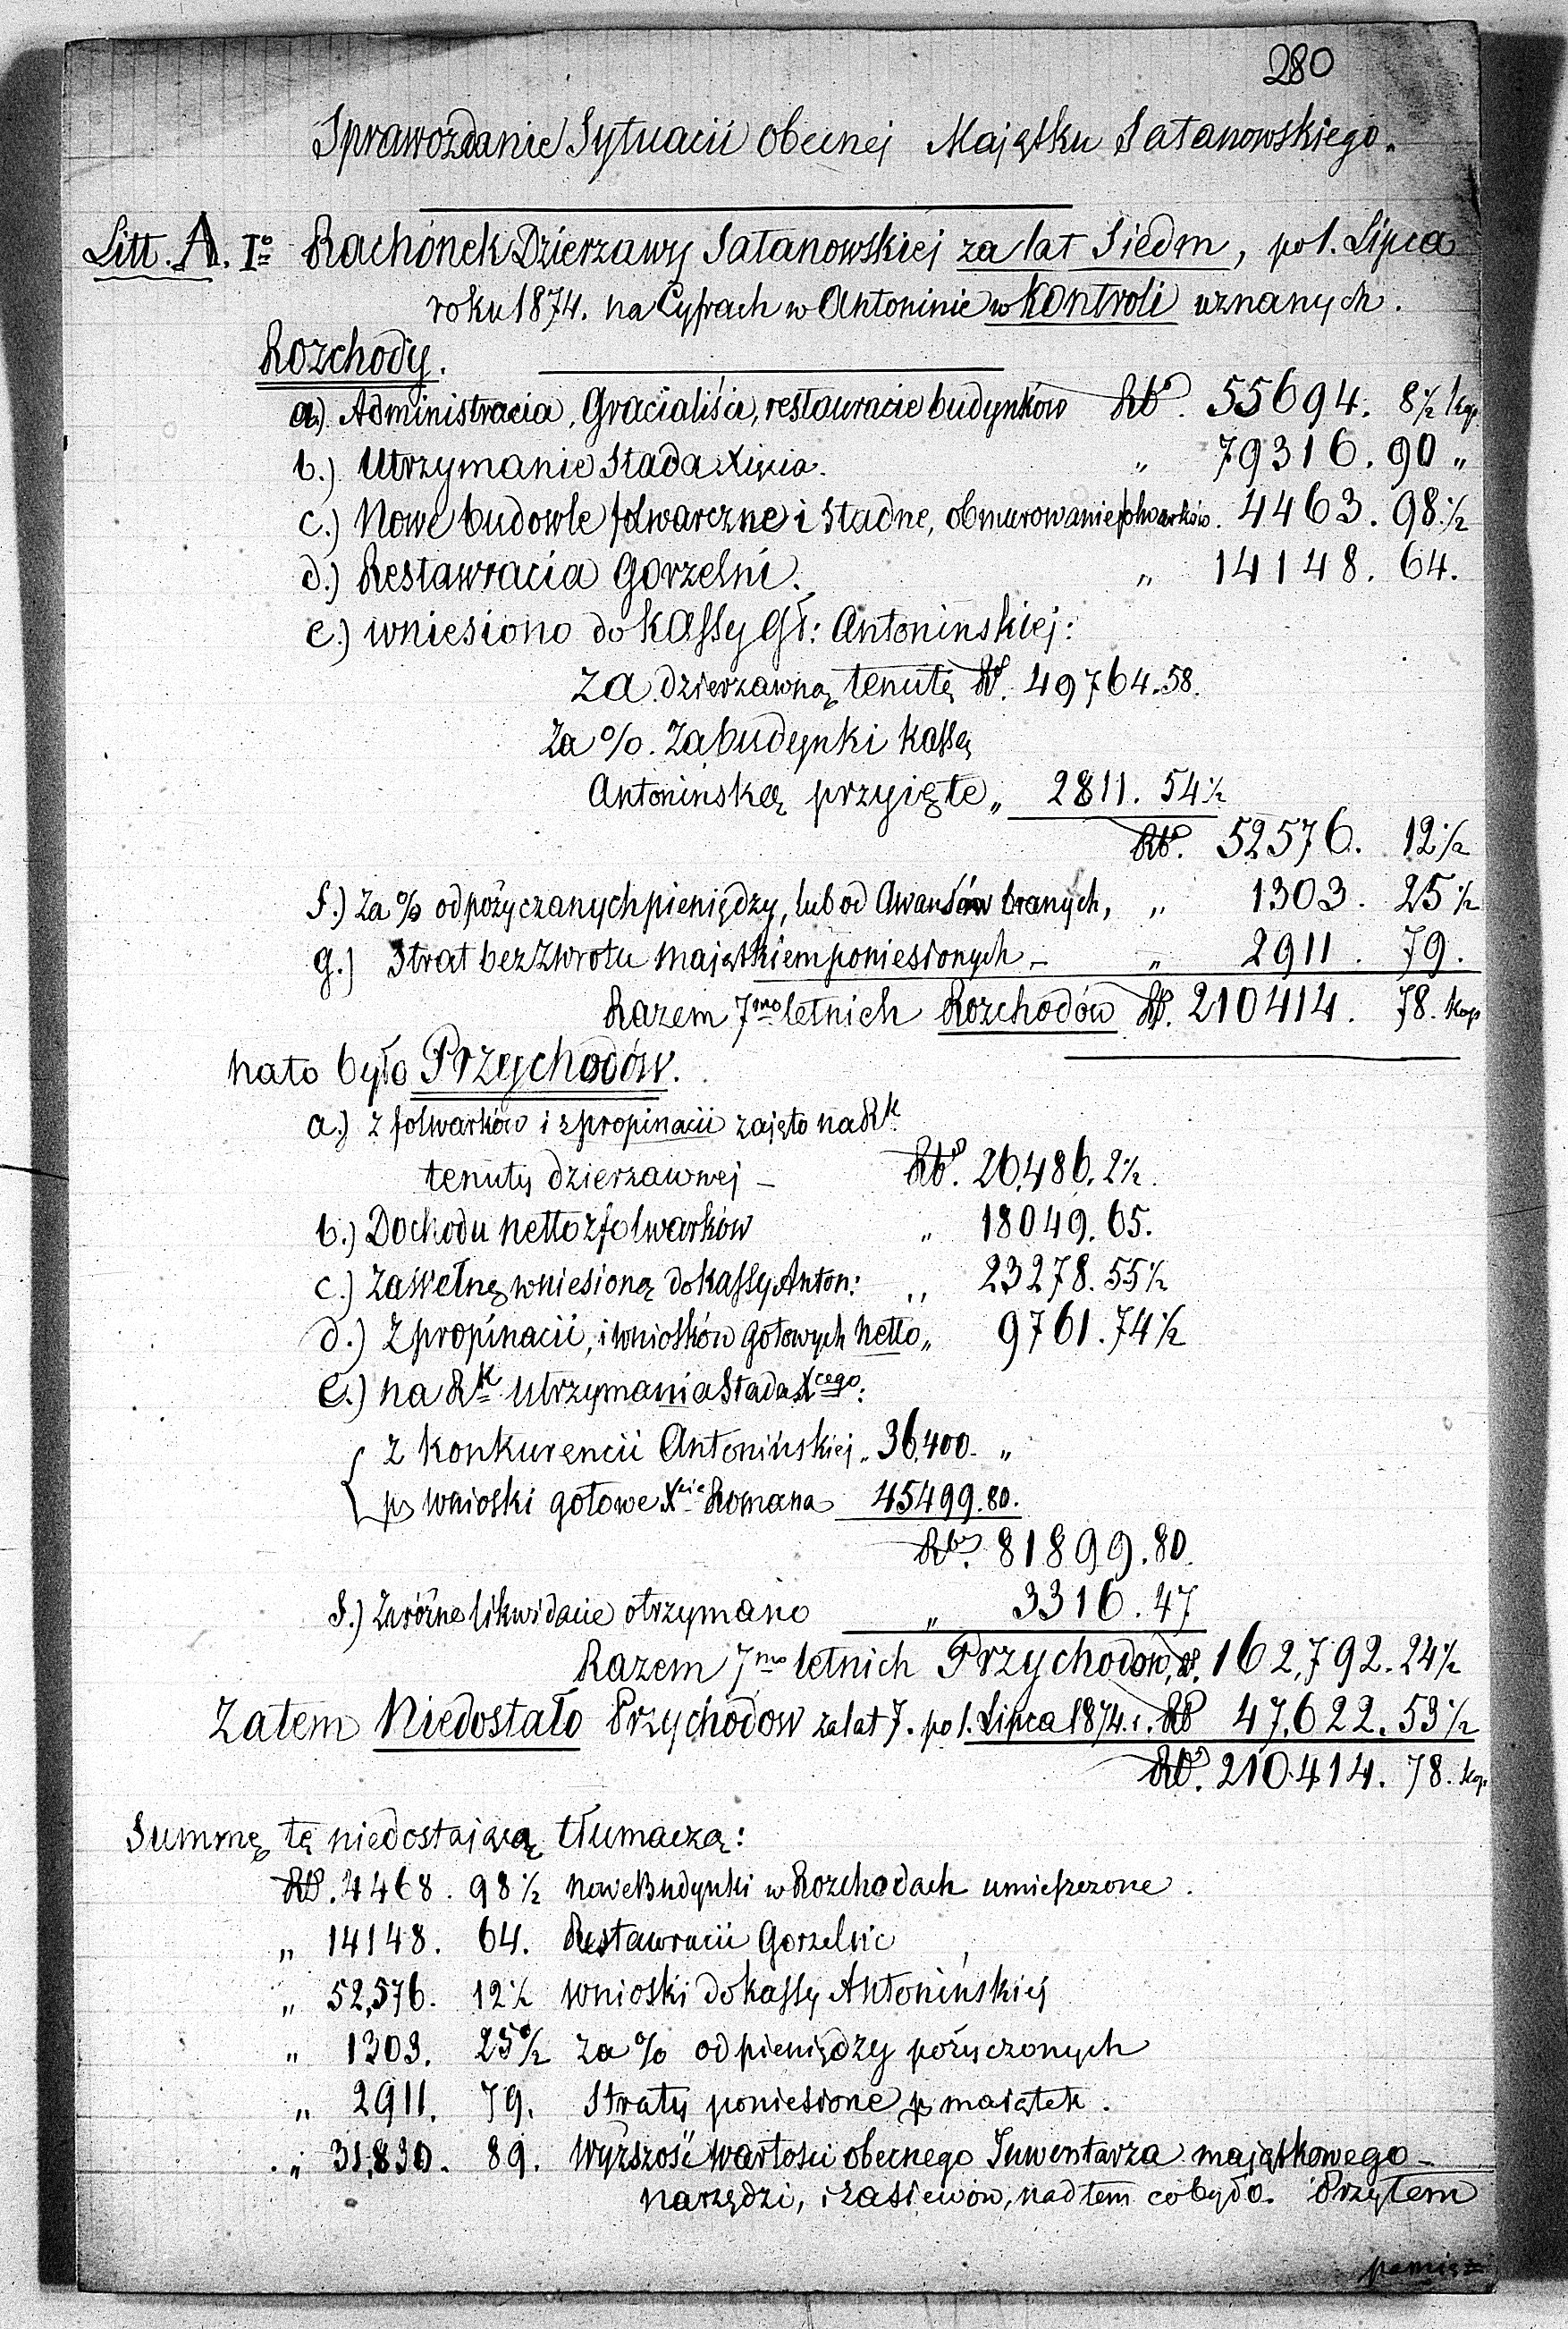 280
Sprawozdanie Sytuacii obecnej Majątku Satanowskiego.
Litt. A. Iº Rachónek Dzierzawy Satanowskiej za lat Siedm, po 1. Lipca
roku 1874. na Cyfrach w Antoninie w Kontroli uznanych.
Rozchody.
a.) Administracia, Gracialiści, restauracie budynków Rbº. 55694. 8½ kop
b.) Utrzymanie Stada Xięcia. „ 79316. 90 „
c.) Nowe budowle folwarczne i Stadne, obmurowanie folwarków. 4463. 98½
d.) Restawracia Gorzelni. „ 14148. 64.
e.) wniesiono do Kassy Gł: Antonińskiej:
za dzierzawną tenutę Rb. 49764.58.
Za %. Za budynki Kassą
Antonińską przyięte „ 2811. 54½
Rbº. 52576. 12½
f.) Za % od pożyczanych pieniędzy, lub od Awansów branych, „ 1303. 25½
g.) Strat bez Zwrotu majątkiem poniesionych – „ 2911. 79.
Razem 7mo letnich Rozchodów Rb. 210414. 78. kop
na to było Przychodów.
a.) z folwarków i z propinacii zajęto na Rk
tenuty dzierzawnej – Rbº. 26,486. 2½.
b.) Dochodu netto z folwarków „ 18049. 65.
c.) Za Wełnę wniesioną do Kassy Anton: „ 23278. 55½
d.) Z propinacii, i wniosków gotowych netto „ 9761. 74½
e.) na Rk utrzymania Stada Xcego:
z Konkurencii Antonińskiej „ 36,400. „
pr wnioski gotowe Xcia Romana 45499.80.
Rbº. 81899.80.
f.) Za różne likwidacie otrzymano „ 3316. 47
Razem 7mo letnich Przychodów, rb. 162,792. 24½
Zatem Niedostało Przychodow za lat 7. po 1. Lipca 1874. r. Rb 47,622. 53½
Rbº. 210.414. 78. kop
Summę tę niedostaiącą tłumaczą:
Rb. 4468. 98½ nowe Budynki w Rozchodach umieszczone.
„ 14148. 64. Restawracii Gorzelnie
„ 52,576. 12½ wnioski do Kassy Antonińskiej
„ 1303. 25½ za % od pieniędzy pożyczonych
„ 2911. 79. Straty poniesione pr maiątek.
„ 31,830. 89. Wyższość wartości obecnego Inwentarza majątkowego –
narzędzi, i zasiewów, nad tem co było. Przytem